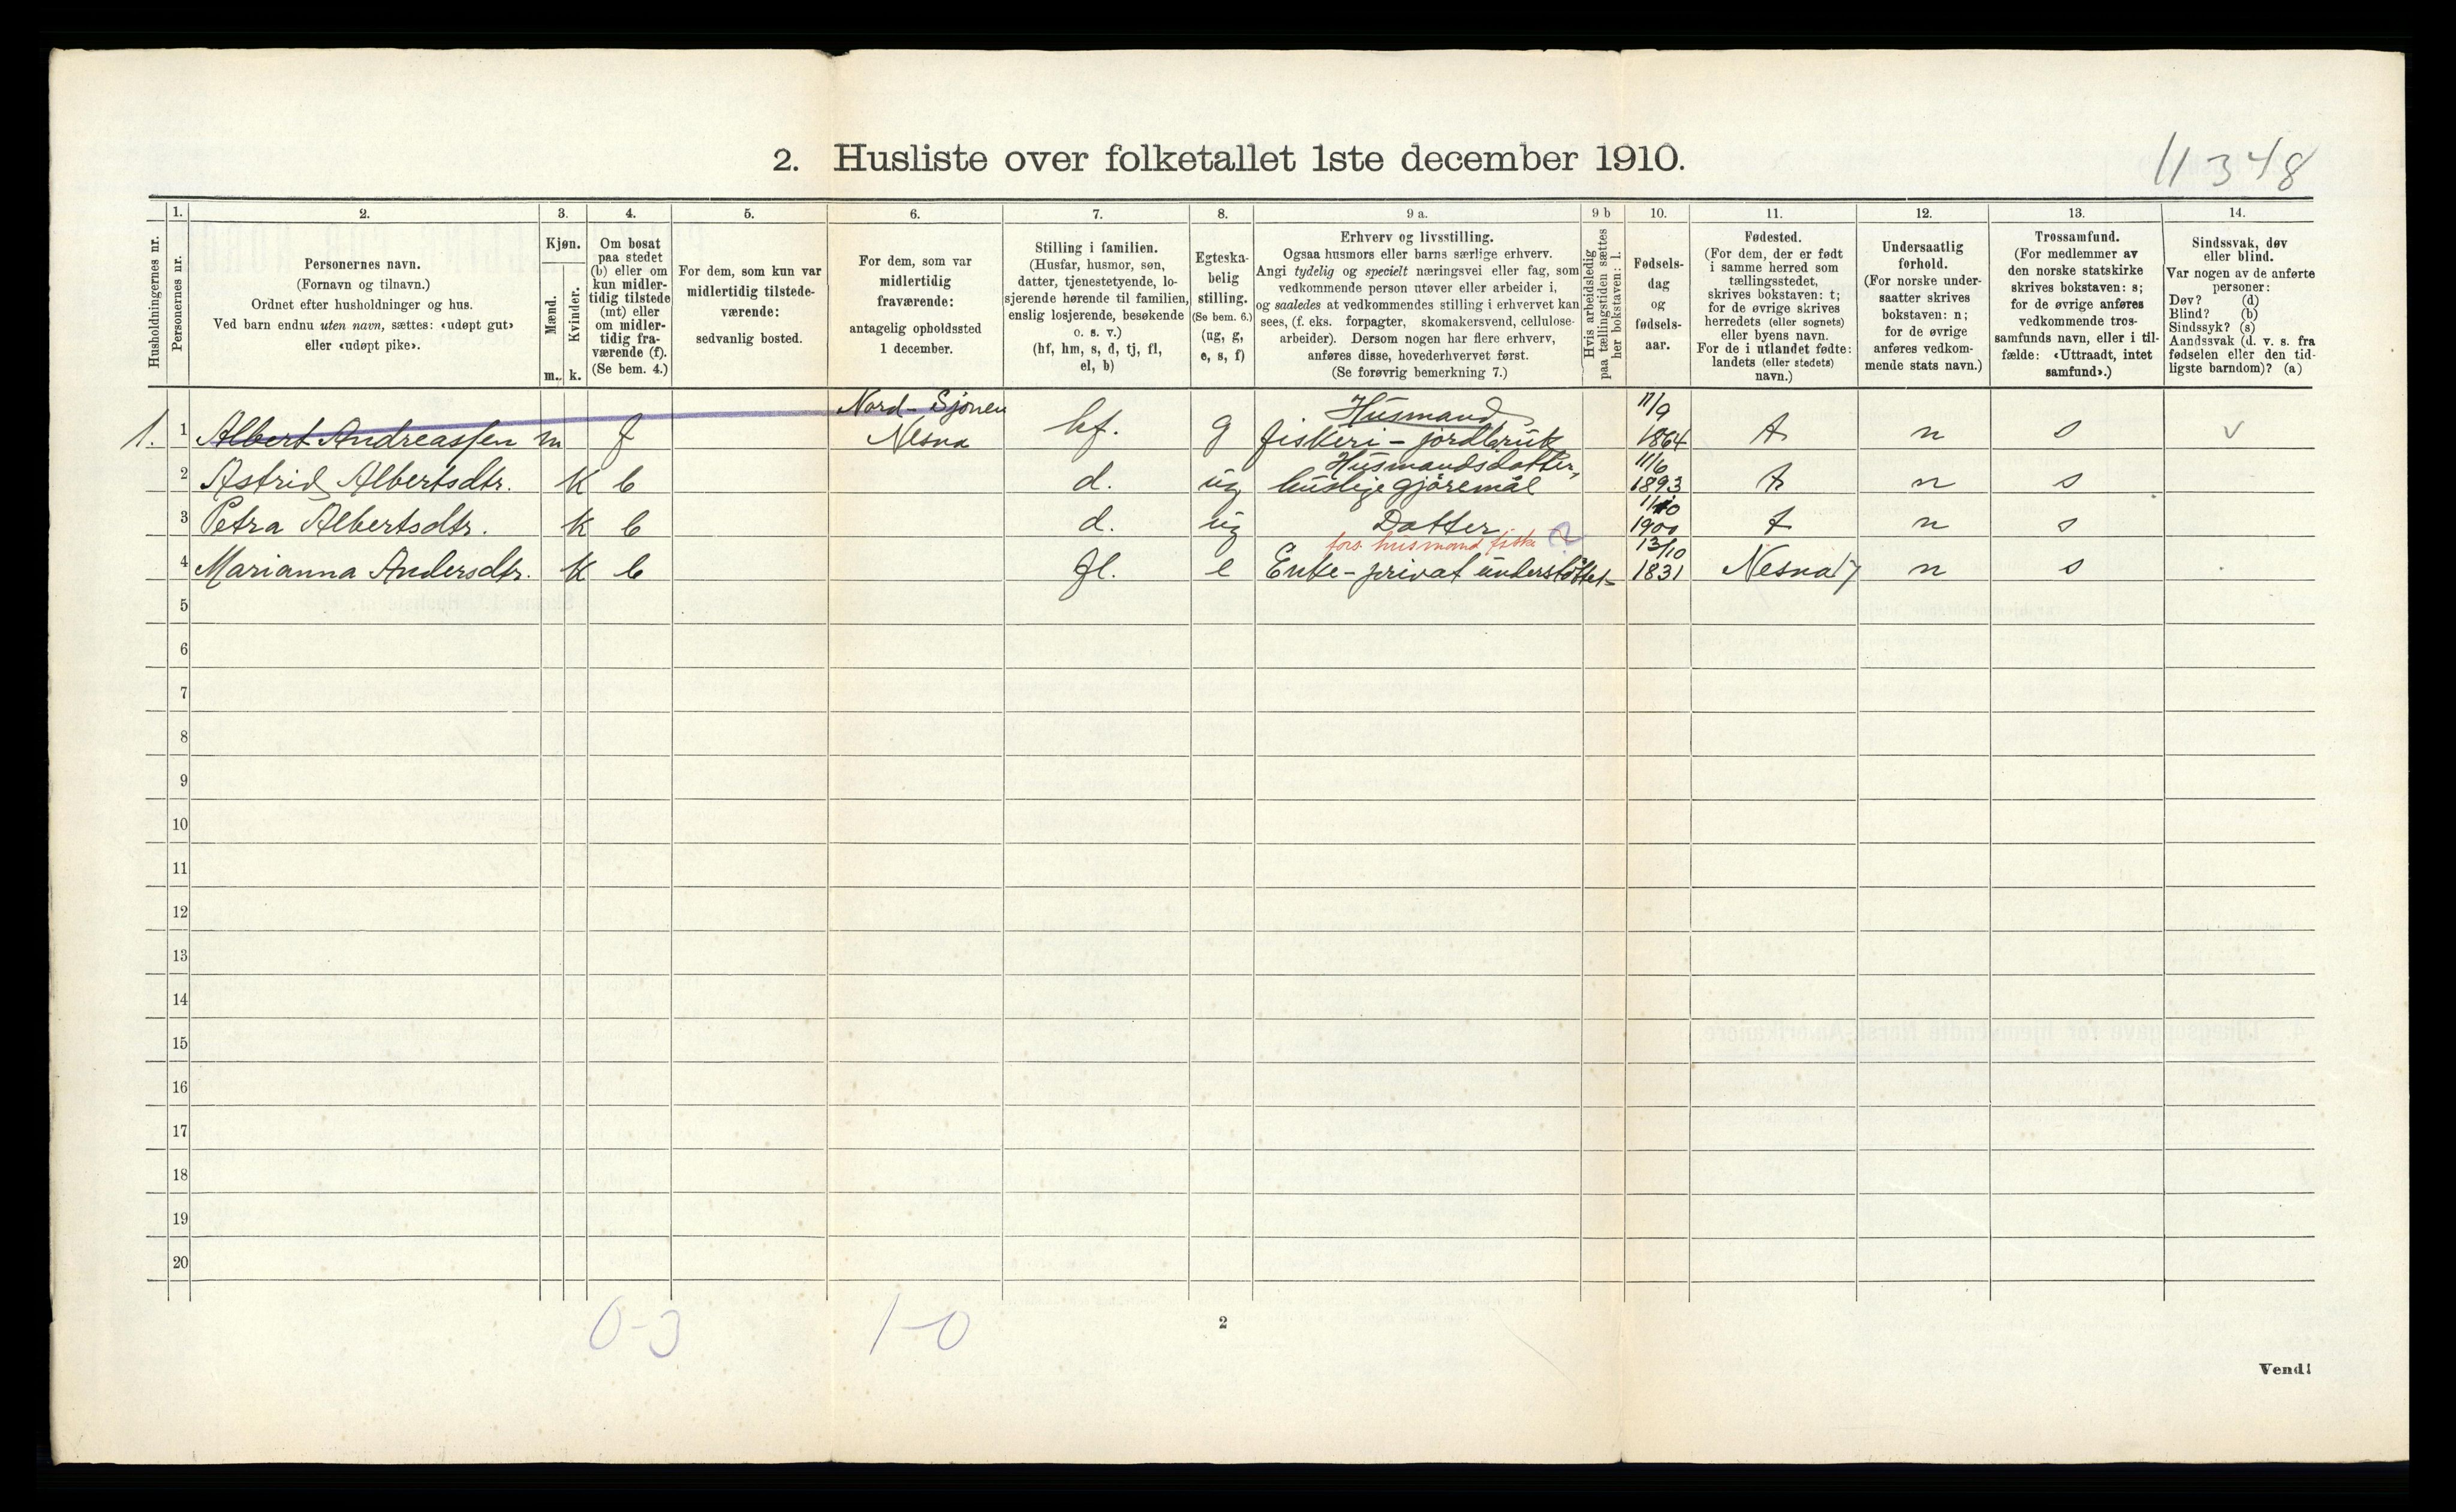 11 348
2. Husliste over folketallet 1ste december 1910.
1. 2. 3. 4. 5. 6. 7. 8. 9 a. 9 b 10. 11. 12. 13. 14.
Husholdningernes nr.
Personernes nr.
Personernes navn.
(Fornavn og tilnavn.)
Ordnet efter husholdninger og hus.
Ved barn endnu uten navn, sættes: «udøpt gut»
eller «udøpt pike».
Kjøn.
Mænd.
Kvinder.
m. k.
Om bosat
paa stedet
(b) eller om
kun midler-
tidig tilstede
(mt) eller
om midler-
tidig fra-
værende (f).
(Se bem. 4.)
For dem, som kun var
midlertidig tilstede-
værende:
sedvanlig bosted.
For dem, som var
midlertidig
fraværende:
antagelig opholdssted
1 december.
Stilling i familien.
(Husfar, husmor, søn,
datter, tjenestetyende, lo-
sjerende hørende til familien,
enslig losjerende, besøkende
o. s. v.)
(hf, hm, s, d, tj, fl,
el, b)
Egteska-
belig
stilling.
(Se bem. 6.)
(ug, g,
e, s, f)
Erhverv og livsstilling.
Ogsaa husmors eller barns særlige erhverv.
Angi tydelig og specielt næringsvei eller fag, som
vedkommende person utøver eller arbeider i,
og saaledes at vedkommendes stilling i erhvervet kan
sees, (f. eks. forpagter, skomakersvend, cellulose-
arbeider). Dersom nogen har flere erhverv,
anføres disse, hovederhvervet først.
(Se forøvrig bemerkning 7.)
Hvis arbeidsledig
paa tællingstiden sættes
her bokstaven: l.
Fødsels-
dag
og
fødsels-
aar.
Fødested.
(For dem, der er født
i samme herred som
tællingsstedet,
skrives bokstaven: t;
for de øvrige skrives
herredets (eller sognets)
eller byens navn.
For de i utlandet fødte:
landets (eller stedets)
navn.)
Undersaatlig
forhold.
(For norske under-
saatter skrives
bokstaven: n;
for de øvrige
anføres vedkom-
mende stats navn.)
Trossamfund.
(For medlemmer av
den norske statskirke
skrives bokstaven: s;
for de øvrige anføres
vedkommende tros-
samfunds navn, eller i til-
fælde: «Uttraadt, intet
samfund».)
Sindssvak, døv
eller blind.
Var nogen av de anførte
personer:
Døv? (d)
Blind? (b)
Sindssyk? (s)
Aandssvak (d. v. s. fra
fødselen eller den tid-
ligste barndom)? (a)
Nord-Sjonen Husmand 11/9
1. 1 Albert Andreassen m f Nesna hf. g fiskeri - jordbruk 1864 t n s v
Husmandsdatter, 11/6
2 Astrid Albertsdtr. k b d. ug huslige gjøremål 1893 t n s
3 Petra Albertsdtr. k b d. ug Datter 1900 t n s
fors. husmand fiske 13/10
4 Marianna Andersdtr. k b fl. e Enke - privat understøttet 1831 Nesna n s
5
6
7
8
9
10
11
12
13
14
15
16
17
18
19
20
0-3 1-0
2
Vend!